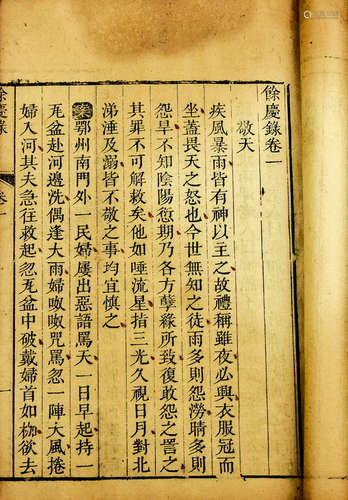 餘慶錄卷一
敬天
疾風暴雨皆有神以主之故禮稱雖夜必興衣服冠而
坐蓋畏天之怒也今世無知之徒雨多則怨澇晴多則
怨旱不知陰陽愆期乃各方孽緣所致復敢怨之詈之
其罪不可解救矣他如唾流星指三光久視日月對北
涕涶及溺皆不敬之事均宜慎之
鄂州南門外一民婦屢出惡語罵天一日早起持一
瓦盆赴河邊洗偶逢大雨婦呶呶咒罵忽一陣大風捲
婦入河其夫急往救起忽瓦盆中破戴婦首如枷欲去
餘慶錄
卷一
一